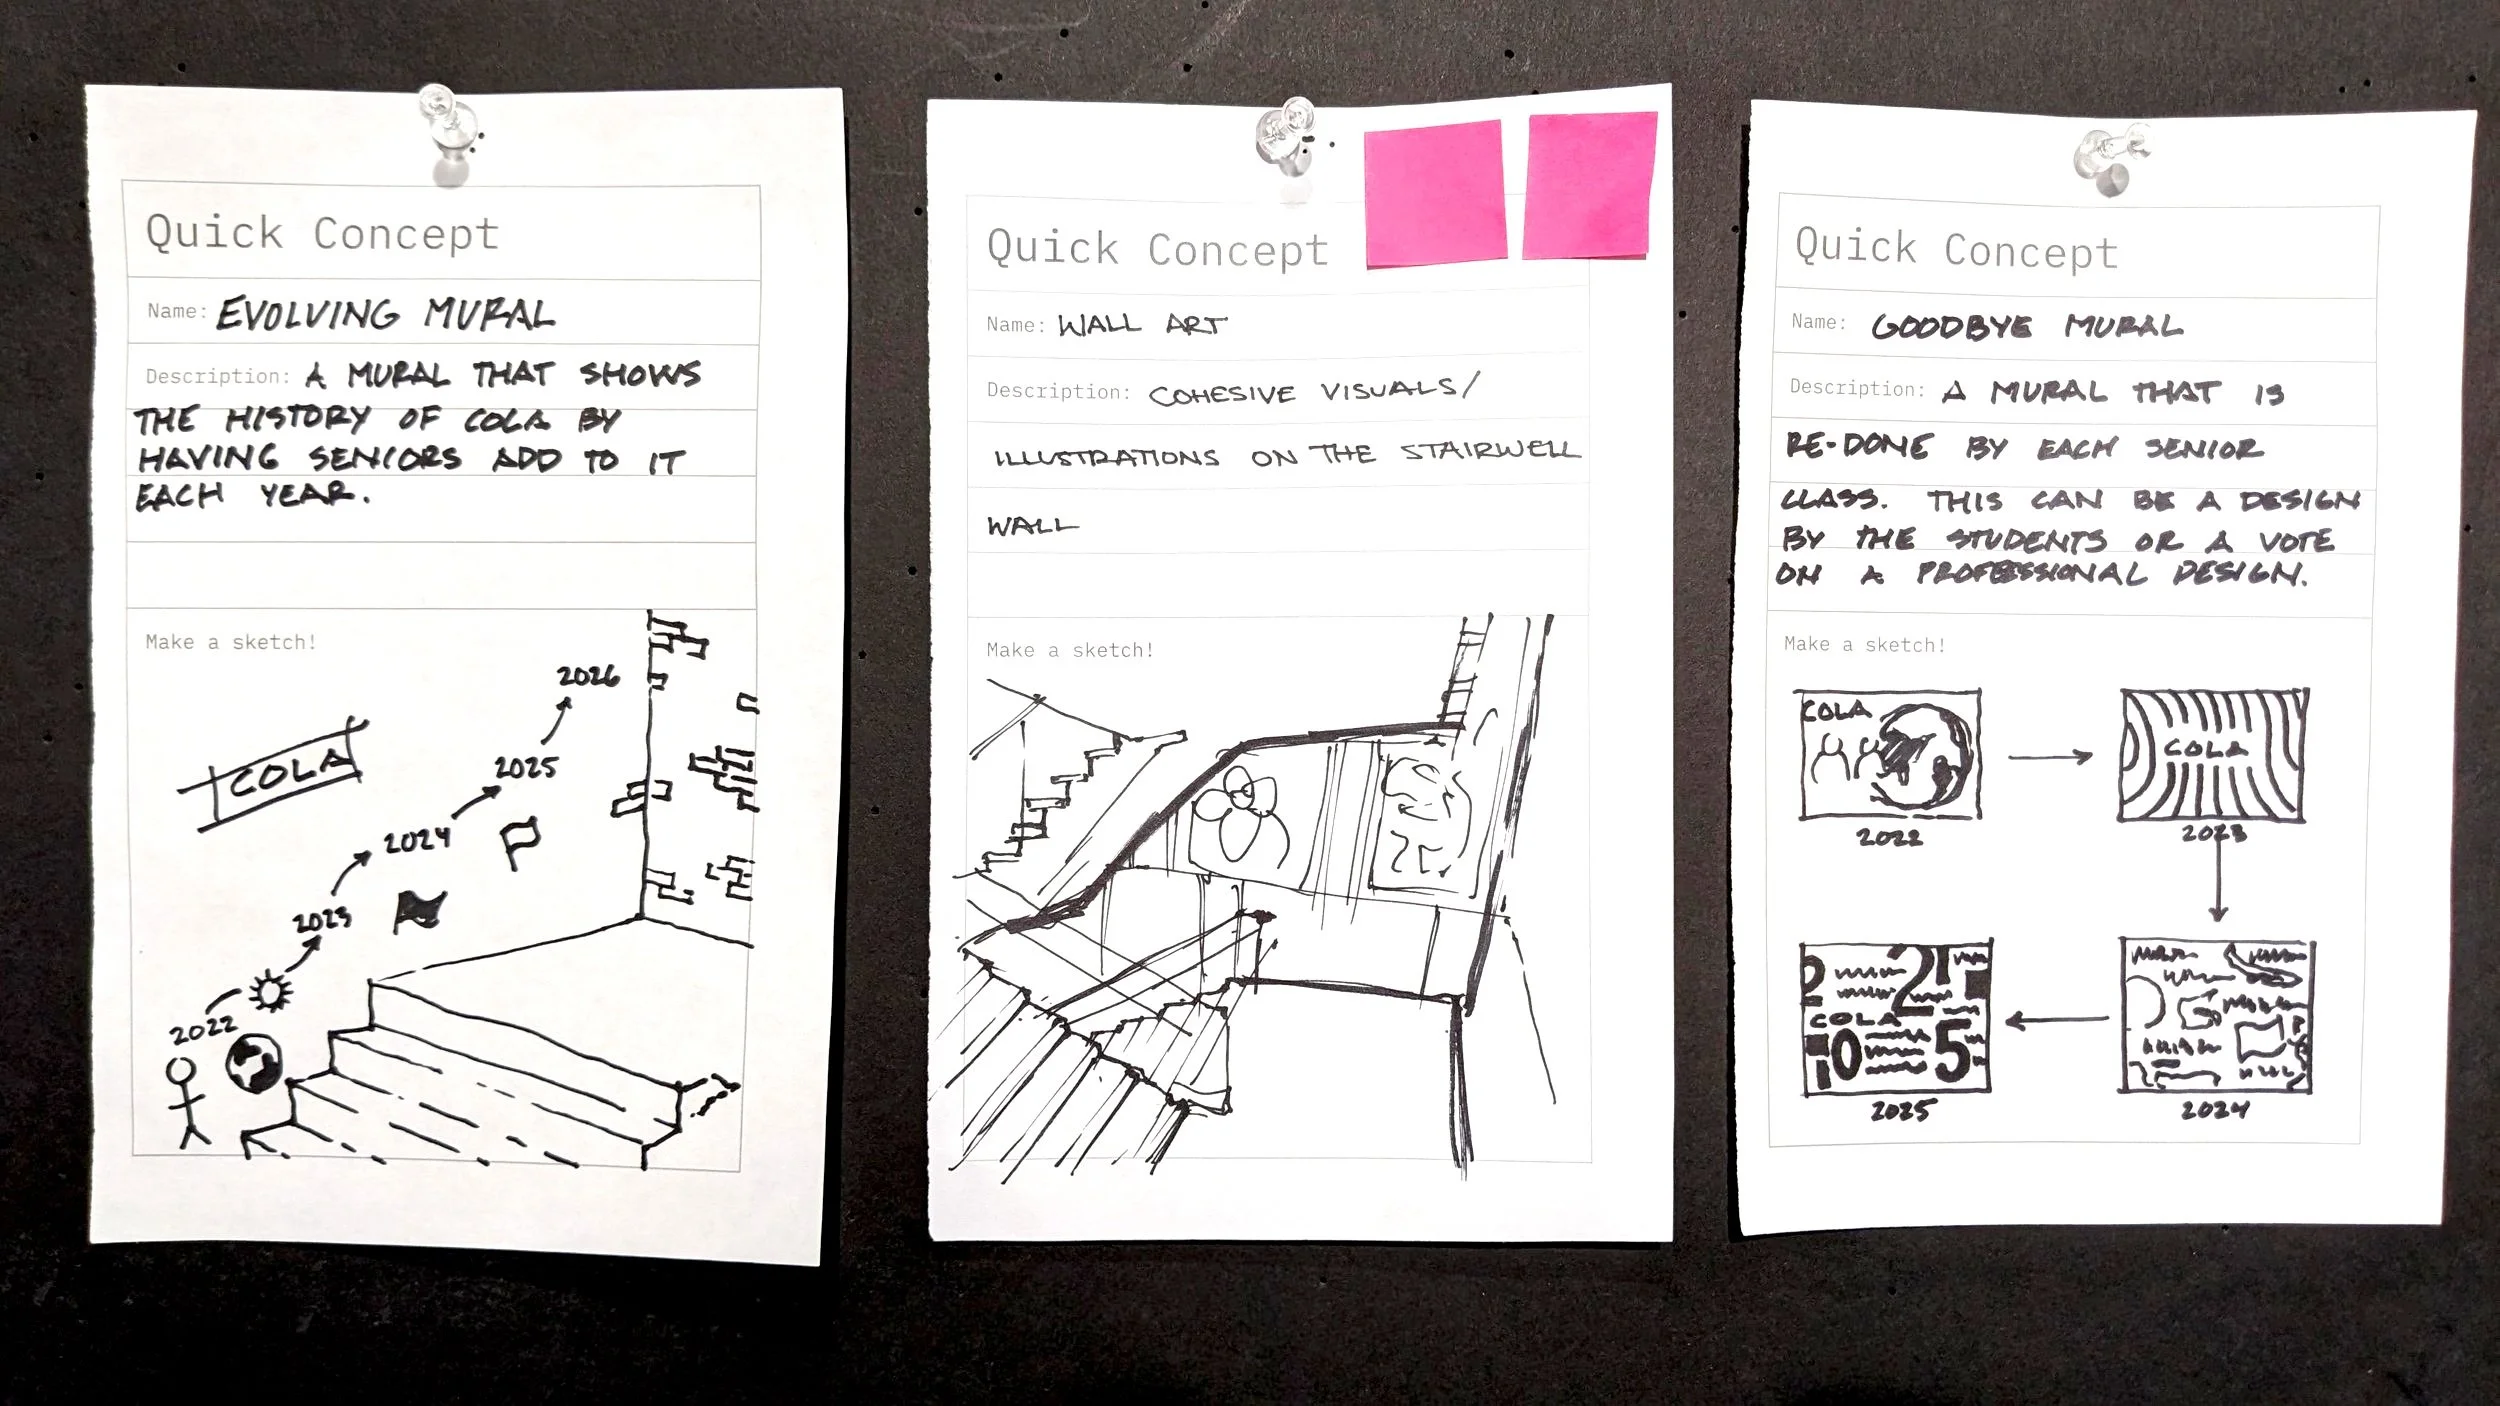 Quick Concept
Name: EVOLVING MURAL
Description: A MURAL THAT SHOWS
THE HISTORY OF COLA BY
HAVING SENIORS ADD TO IT
EACH YEAR.
Make a sketch!
2026
COLA
2025
2024
2023
2022
Quick Concept
Name: WALL ART
Description: COHESIVE VISUALS/
ILLUSTRATIONS ON THE STAIRWELL
WALL
Make a sketch!
Quick Concept
Name: GOODBYE MURAL
Description: A MURAL THAT IS
RE-DONE BY EACH SENIOR
CLASS. THIS CAN BE A DESIGN
BY THE STUDENTS OR A VOTE
ON A PROFESSIONAL DESIGN.
Make a sketch!
COLA
COLA
2022
2023
2
2
COLA
0
5
2025
2024